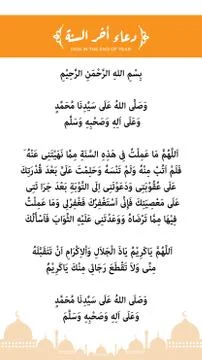 دعاء أخر السنة
DOA IN THE END OF YEAR
بِسْمِ اللهِ الرَّحْمَنِ الرَّحِيْمِ
وَصَلَّى اللهُ عَلَى سَيِّدِنَا مُحَمَّدٍ
وَعَلَى آلِهِ وَصَحْبِهِ وَسَلَّمَ
اَللّٰهُمَّ مَا عَمِلْتُ فِي هٰذِهِ السَّنَةِ مِمَّا نَهَيْتَنِي عَنْهُ
فَلَمْ اَتُبْ مِنْهُ وَلَمْ تَنْسَهُ وَحَلِمْتَ عَلَيَّ بَعْدَ قُدْرَتِكَ
عَلَى عُقُوْبَتِي وَدَعَوْتَنِي اِلَى التَّوْبَةِ بَعْدَ جَرَا ئَتِي
عَلَى مَعْصِيَتِكَ فَاِنِّي اَسْتَغْفِرُكَ فَاغْفِرْلِي وَمَا عَمِلْتُ
فِيْهَا مِمَّا تَرْضَاهُ وَوَعَدْتَنِي عَلَيْهِ الثَّوَابَ فَأَسْأَلُكَ
اَللّٰهُمَّ يَاكَرِيْمُ يَاذَ الْجَلَالِ وَالْاِكْرَامِ اَنْ تَتَقَبَّلَهُ
مِنِّي وَلَا تَقْطَعَ رَجَائِي مِنْكَ يَاكَرِيْمُ
وَصَلَّى اللهُ عَلَى سَيِّدِنَا مُحَمَّدٍ
وَعَلَى آلِهِ وَصَحْبِهِ وَسَلَّمَ